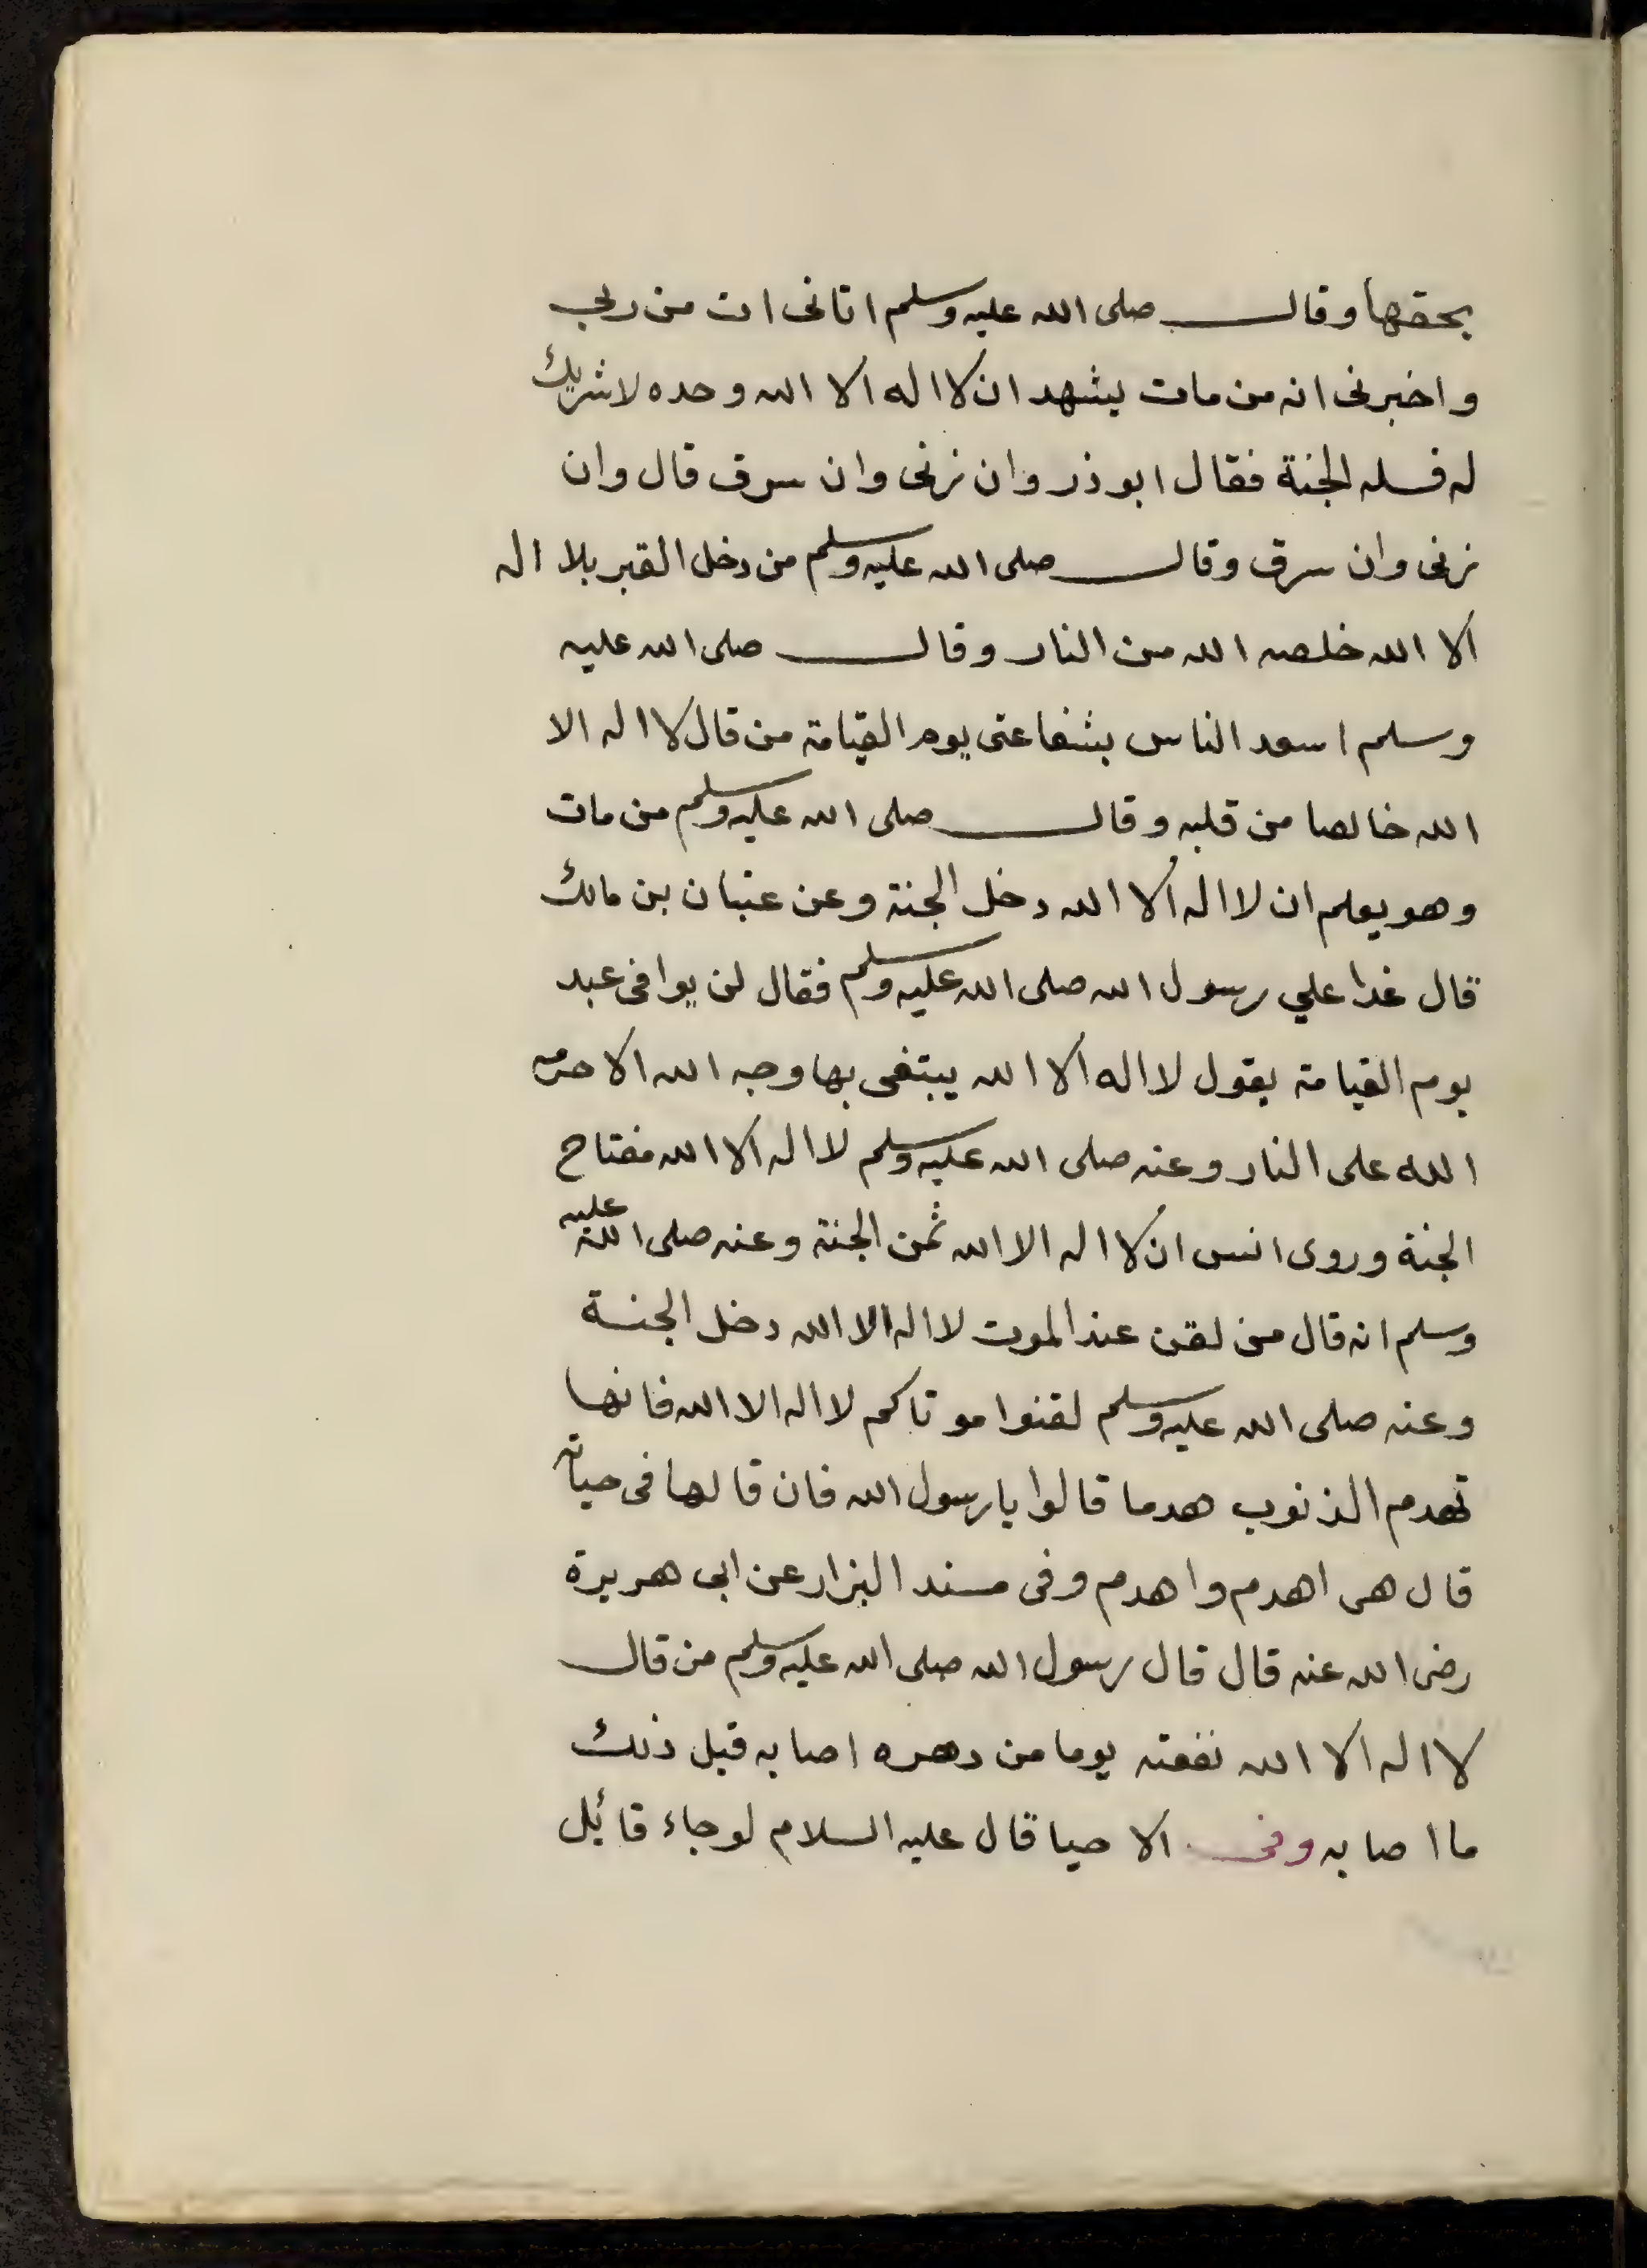 بحقها وقال صلى الله عليه وسلم اتانى ات من ربى
واخبرنى انه من مات يشهد ان لا اله الا الله وحده لا شريك
له فله الجنة فقال ابو ذر وان زنى وان سرق قال وان
زنى وان سرق وقال صلى الله عليه وسلم من دخل القبر بلا اله
الا الله خلصه الله من النار وقال صلى الله عليه
وسلم اسعد الناس بشفاعتى يوم القيامة من قال لا اله الا
الله خالصا من قلبه وقال صلى الله عليه وسلم من مات
وهو يعلم ان لا اله الا الله دخل الجنة وعن عتبان بن مالك
قال غدا علي رسول الله صلى الله عليه وسلم فقال لن يوافى عبد
يوم القيامة يقول لا اله الا الله يبتغى بها وجه الله الا حرمه
الله على النار وعنه صلى الله عليه وسلم لا اله الا الله مفتاح
الجنة وروى انس ان لا اله الا الله ثمن الجنة وعنه صلى الله عليه
وسلم انه قال من لقن عند الموت لا اله الا الله دخل الجنة
وعنه صلى الله عليه وسلم لقنوا موتاكم لا اله الا الله فانها
تهدم الذنوب هدما قالوا يا رسول الله فان قالها فى حياته
قال هى اهدم واهدم وفى مسند البزار عن ابى هريرة
رضى الله عنه قال قال رسول الله صلى الله عليه وسلم من قال
لا اله الا الله نفعته يوما من دهره اصابه قبل ذلك
ما اصابه وفى الاحيا قال عليه السلام لو جاء قائل